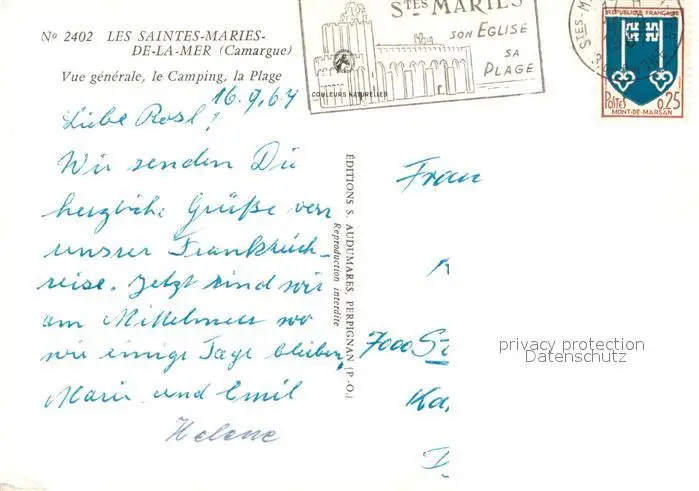 Nº 2402 LES SAINTES-MARIES-
DE-LA-MER (Camargue)
Vue générale, le Camping, la Plage
STES MARIES
SON EGLISE
SA
PLAGE
COULEURS NATURELLES
STES-M
RÉPUBLIQUE FRANÇAISE
POSTES 0,25
MONT-DE-MARSAN
16.9.67
Liebe Rosl!
Wir senden Dir
herzliche Grüße von
unsrer Frankreich-
reise. Jetzt sind wir
am Mittelmeer wo
wir einige Tage bleiben.
Marie und Emil
Helene
ÉDITIONS S. AUDUMARES, PERPIGNAN (P.-O.)
Reproduction interdite
Frau
7000 St
Ka
privacy protection
Datenschutz